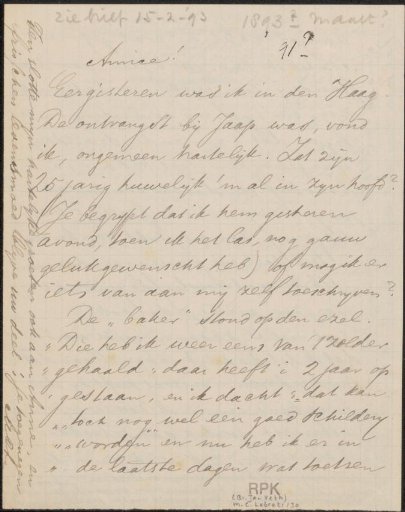 zie brief 15-2-'93
1893? maart?
'91?
Amice!
Eergisteren was ik in den Haag.
De ontvangst bij Jaap was, vond
ik, ongemeen hartelijk. Zat zijn
25 jarig huwelijk 'm al in zijn hoofd?
(Je begrijpt dat ik hem gisteren
avond, toen ik het las, nog gauw
gelukgewenscht heb) of mag ik er
iets van aan mij zelf toeschrijven?
De "baker" stond op den ezel.
"Die heb ik weer eens van 't zolder
"gehaald: daar heeft i 2 jaar op
"gestaan, en ik dacht: "dat kan
""toch nog wel een goed schildery
""worden" en nu heb ik er in
"de laatste dagen wat toetsen
Ten slotte mijn hartelijke groeten ook aan Amice, en
RPK
(Br. Jan Veth)